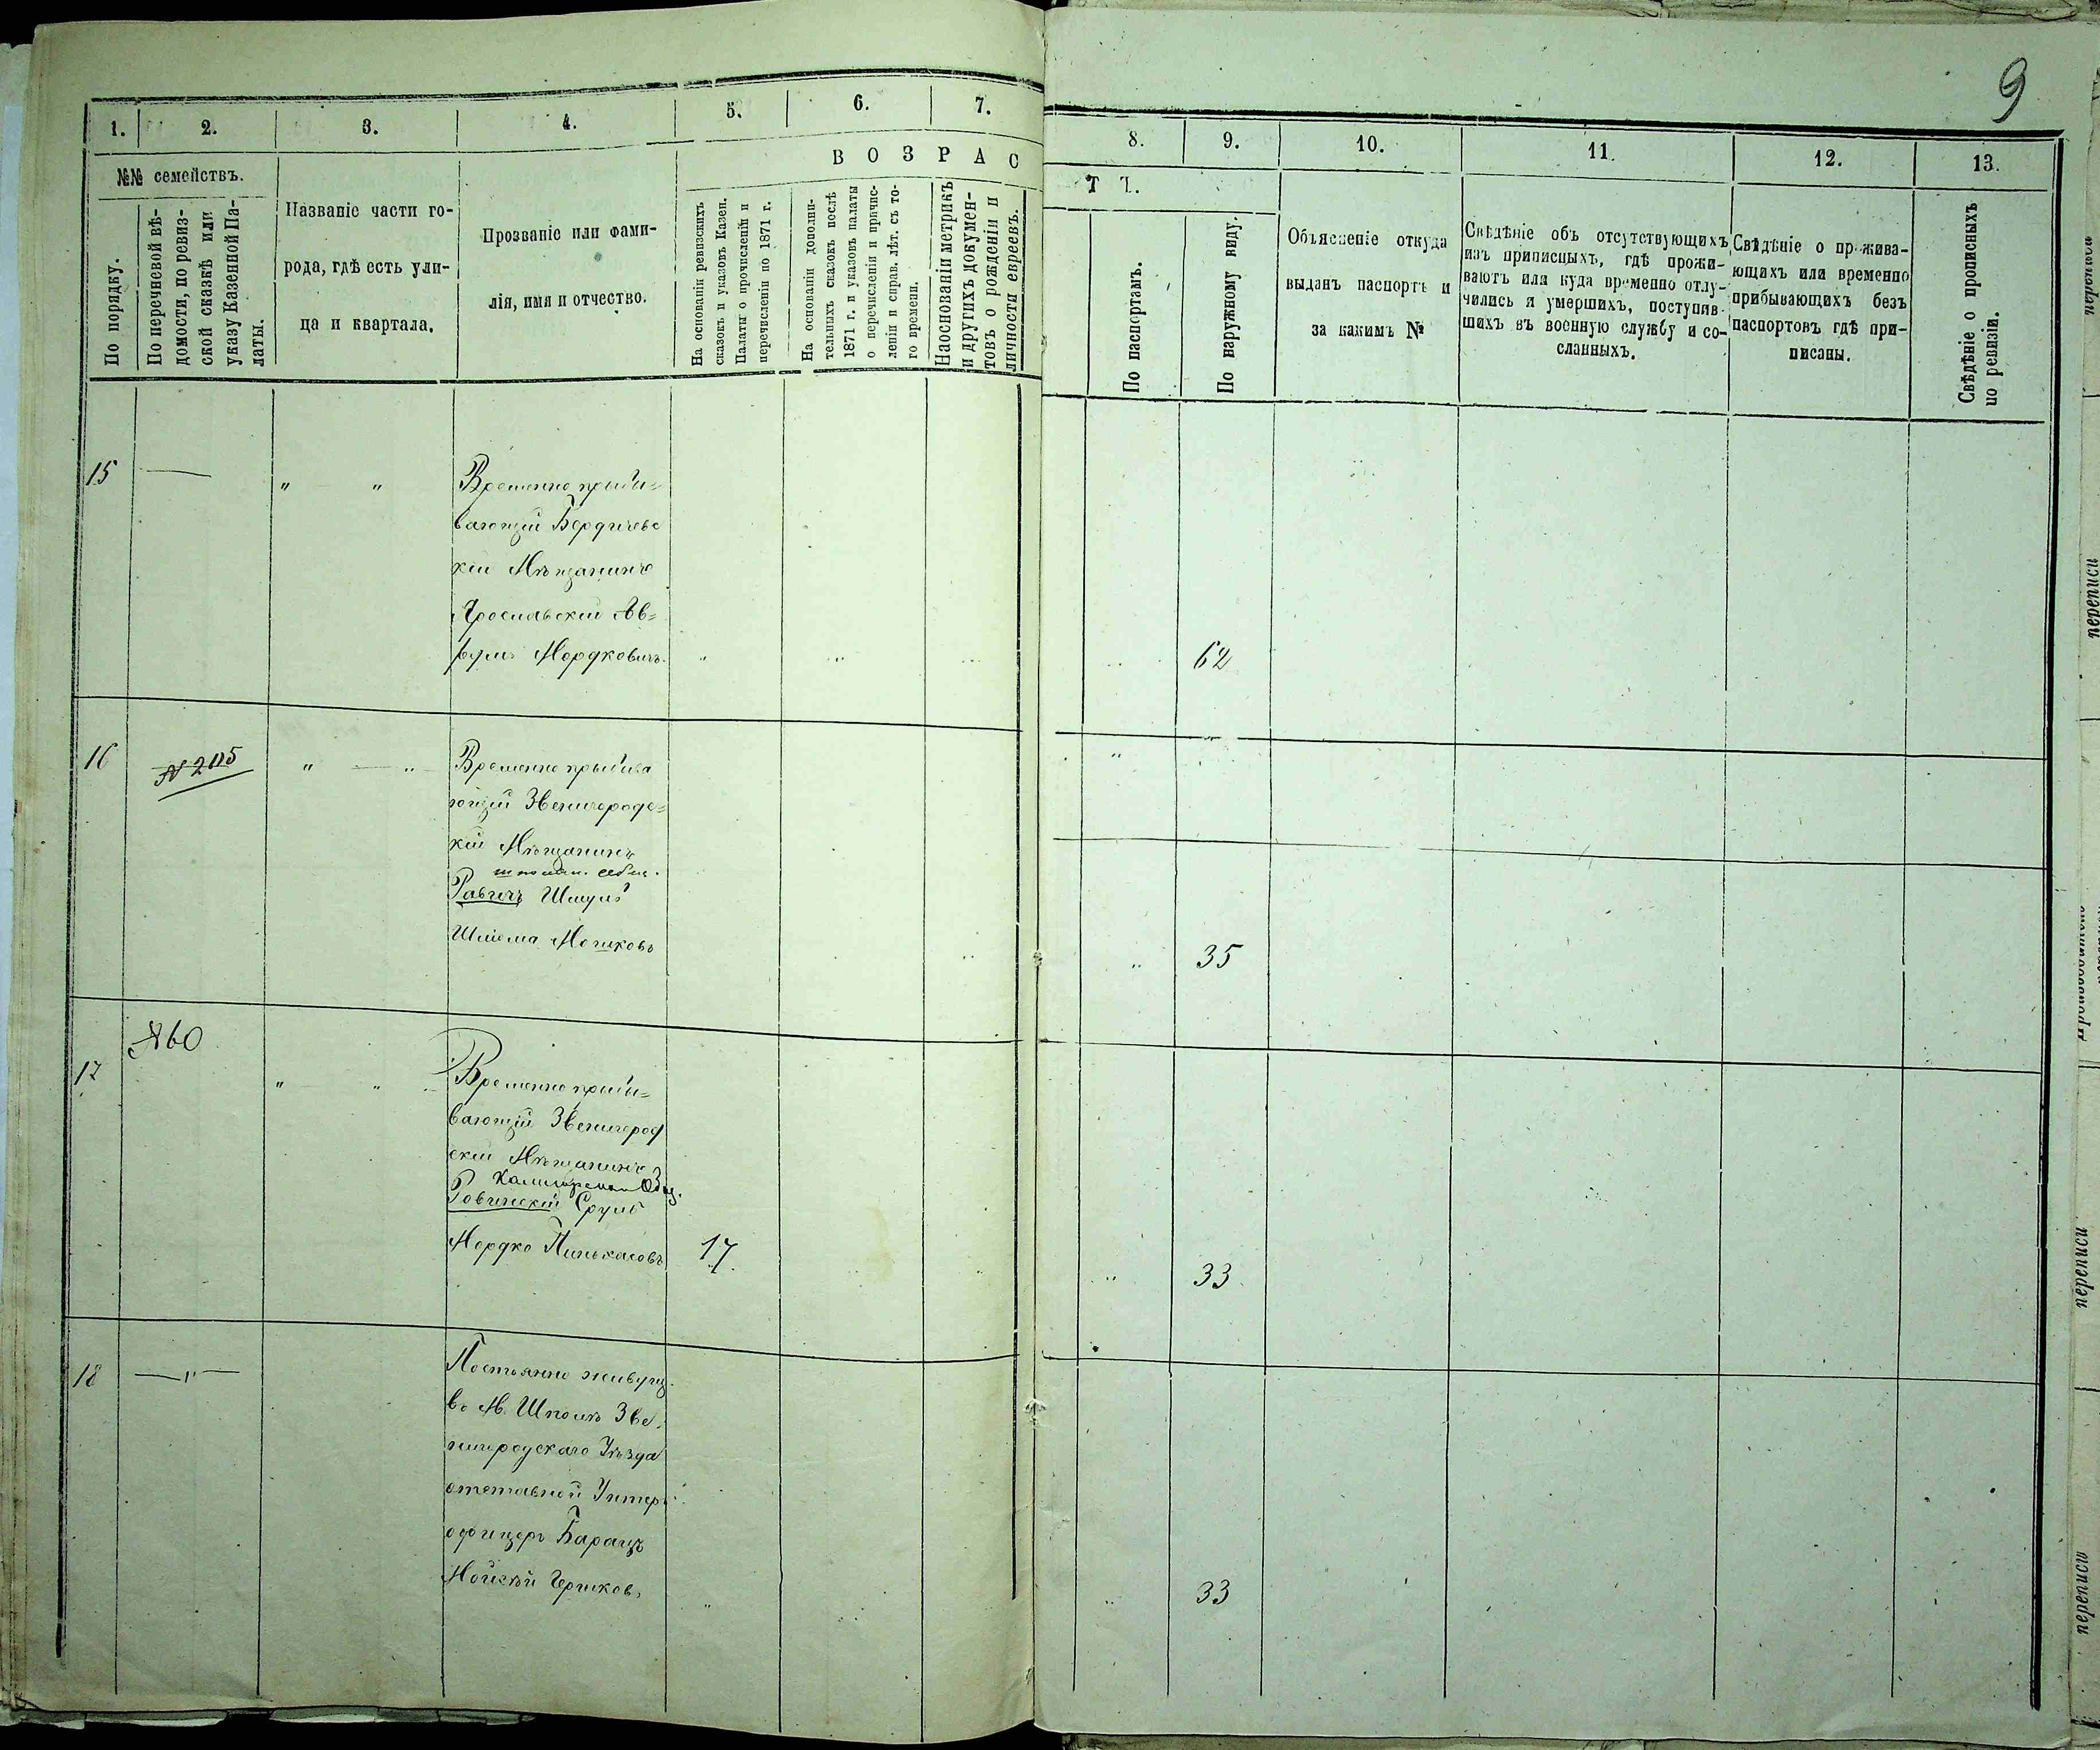 9
1. 2. 3. 4. 5. 6. 7. 8. 9. 10. 11. 12. 13.
№№ семействъ.
По порядку.
По перечневой вѣ-
домости, по ревиз-
ской сказкѣ или
указу Казенной Па-
латы.
Названіе части го-
рода, гдѣ есть ули-
ца и квартала.
Прозваніе или фами-
лія, имя и отчество.
ВОЗРАСТЪ.
На основаніи ревизскихъ
сказокъ и указовъ Казен.
Палаты о причисленіи и
перечисленіи по 1871 г.
На основаніи дополни-
тельныхъ сказокъ послѣ
1871 г. и указовъ палаты
о перечисленіи и причис-
леніи и справ. лѣт. съ то-
го времени.
На основаніи метрикъ
и другихъ докумен-
товъ о рожденіи и
личности евреевъ.
По паспортамъ.
По наружному виду.
Объясненіе откуда
выданъ паспортъ и
за какимъ №
Свѣдѣніе объ отсутствующихъ
изъ приписныхъ, гдѣ прожи-
ваютъ или куда временно отлу-
чились и умершихъ, поступив-
шихъ въ военную службу и со-
сланныхъ.
Свѣдѣніе о прожива-
ющихъ или временно
прибывающихъ безъ
паспортовъ гдѣ при-
писаны.
Свѣдѣніе о прописныхъ
по ревизіи.
15 — " " Временно прибы=
вающій Бердичевс
кій Мѣщанинъ
Ярославскій Ав=
румъ Мордковичъ. " " " " 62
16 №2115 " " Временно прибыва
ющій Звенигородс=
кій Мѣщанинъ
Равичъ Шмуль
Шліома Мошковъ " 35
№60
17 " " Временно прибы=
вающій Звенигород
скій Мѣщанинъ
Равинскій Сруль
Мордко Пинькасовъ 17. " 33
18 —"— Постоянно живущ.
въ М. Шполѣ Зве-
нигородскаго Уѣзда
отставной Унтеръ
офицеръ Барацъ
Мойсѣй Гершковъ " " 33
переписи
переписи
переписи